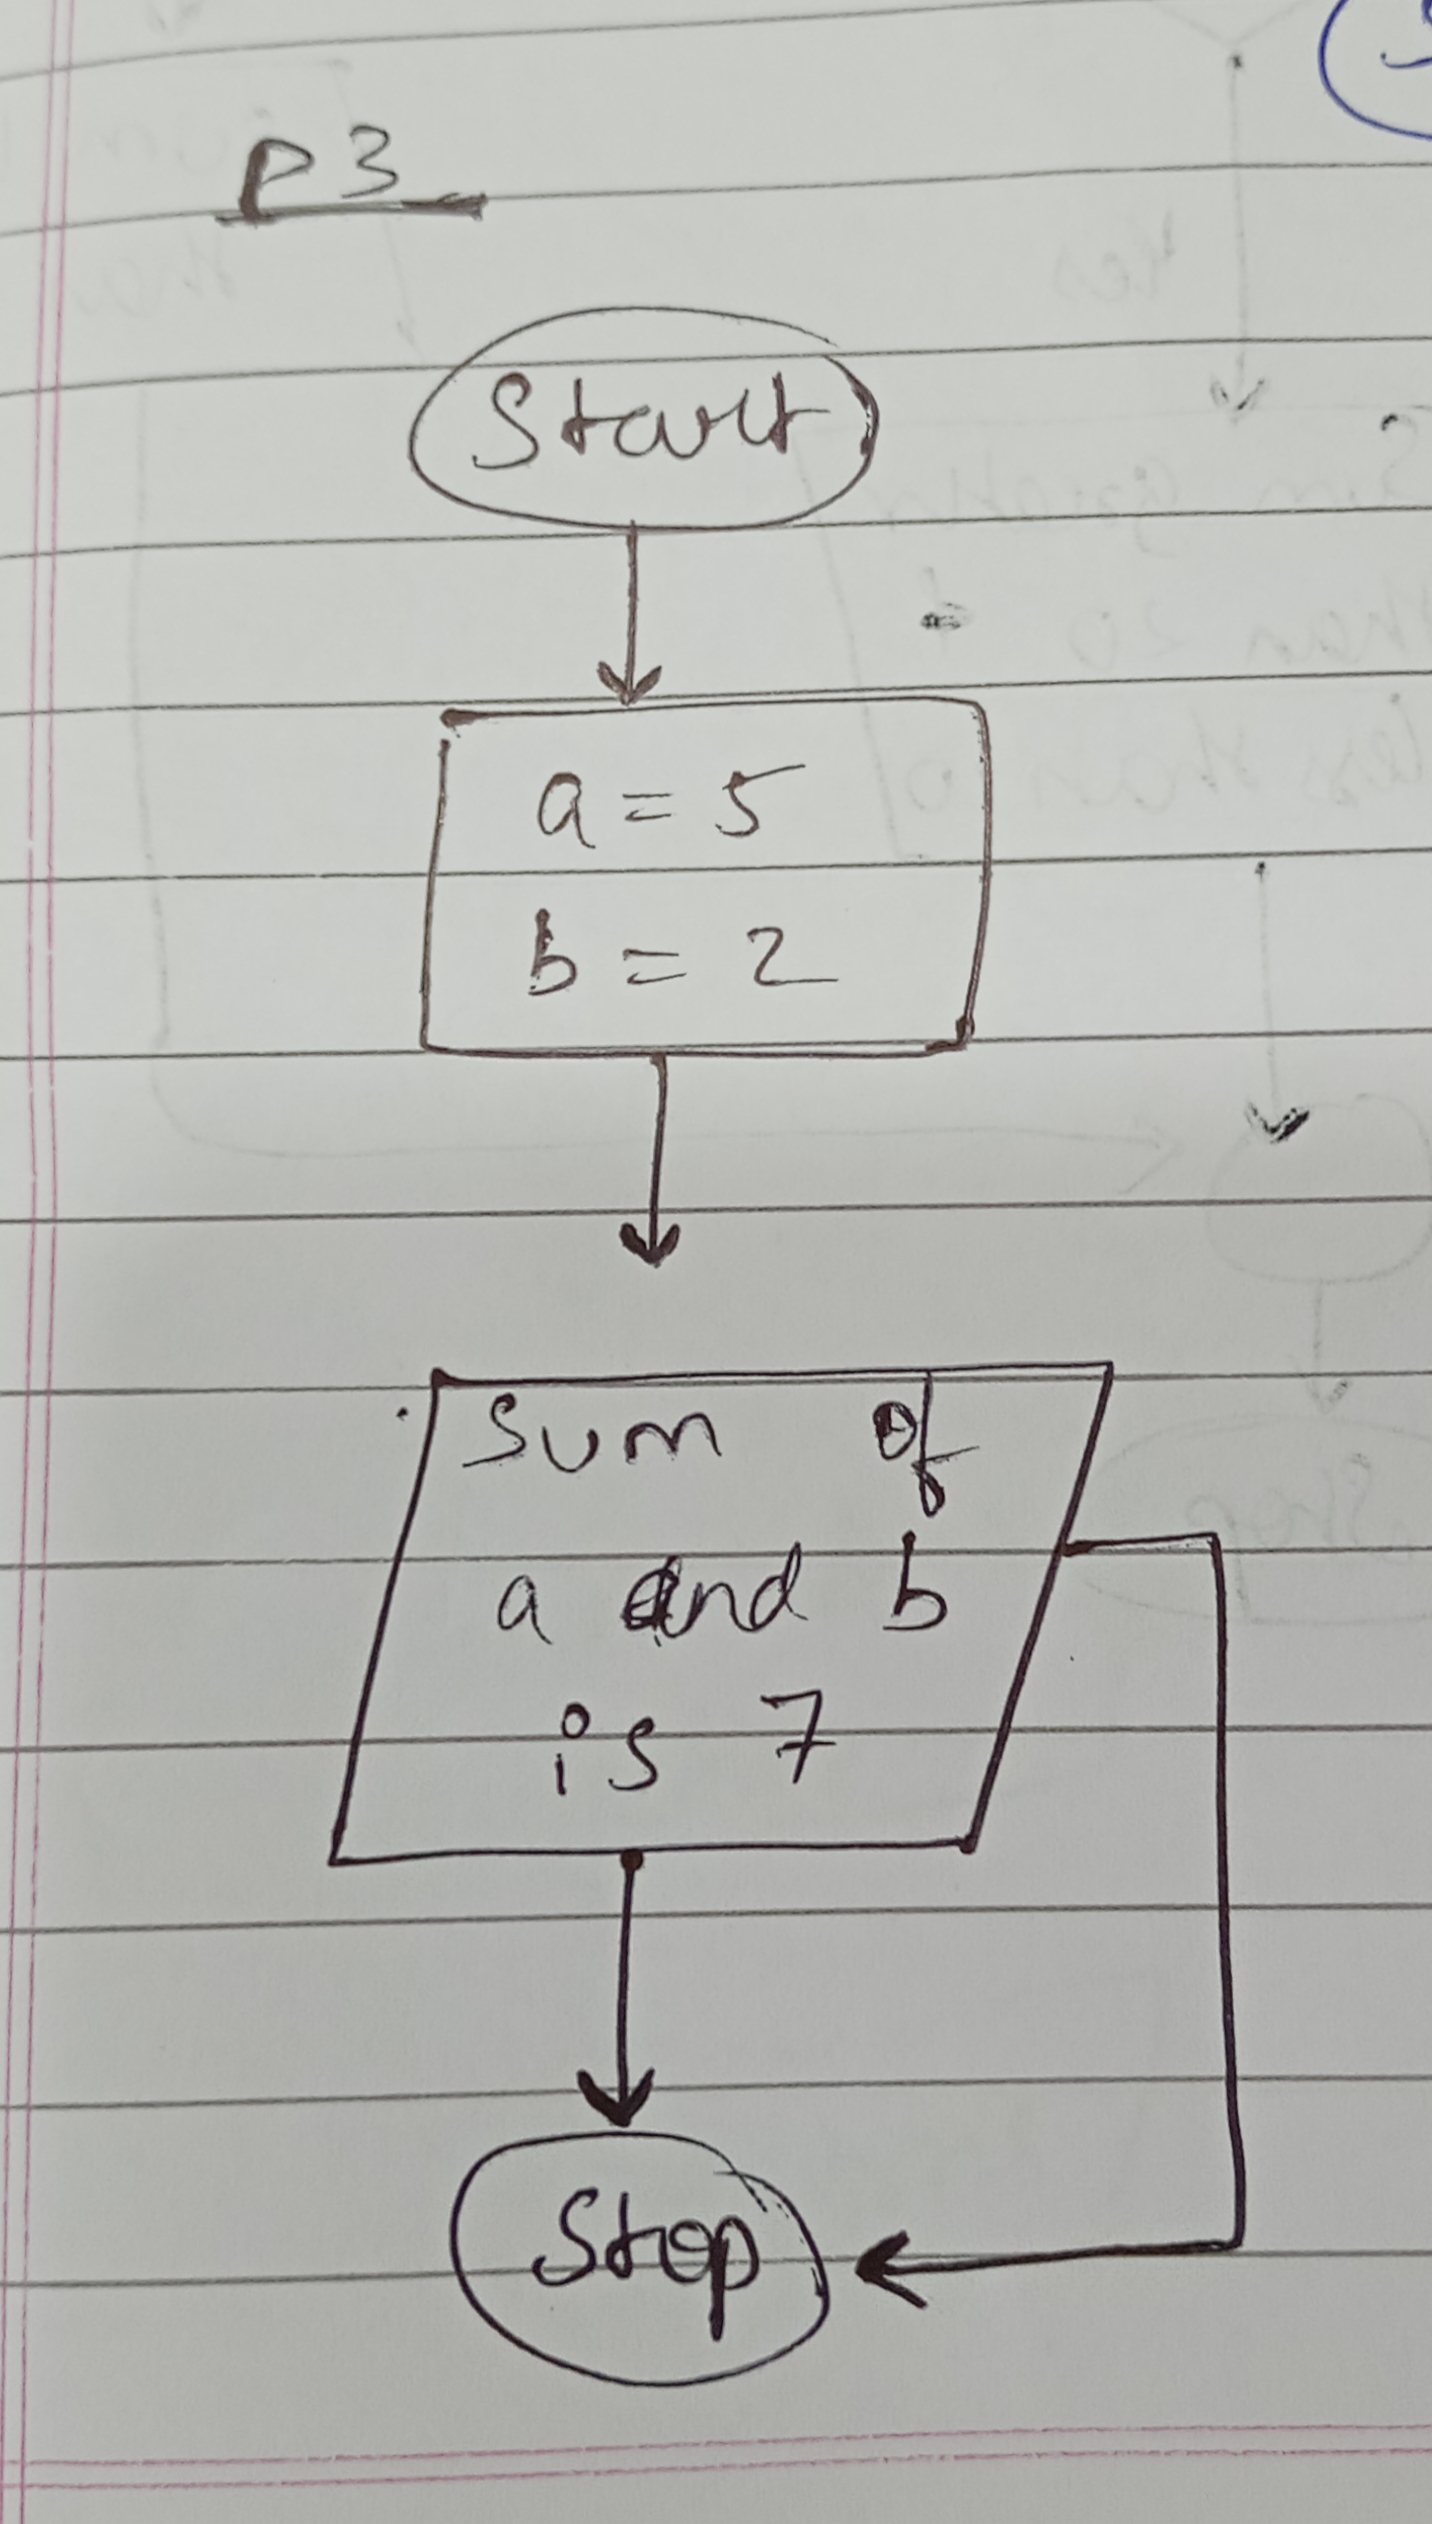 P3
Start
a = 5
b = 2
Sum of
a and b
is 7
Stop